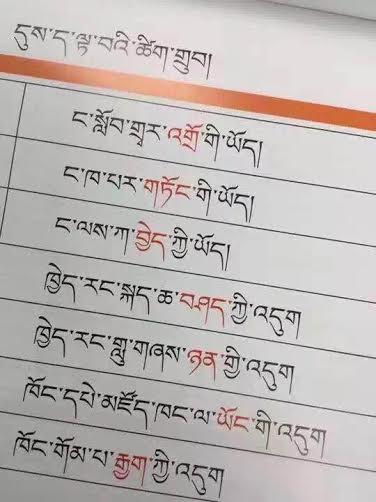 དུས་ད་ལྟ་བའི་ཚིག་གྲུབ།
ང་སློབ་གྲྭར་འགྲོ་གི་ཡོད།
ང་ཁ་པར་གཏོང་གི་ཡོད།
ང་ལས་ཀ་བྱེད་ཀྱི་ཡོད།
ཁྱེད་རང་སྐད་ཆ་བཤད་ཀྱི་འདུག
ཁྱེད་རང་གླུ་གཞས་ཉན་གྱི་འདུག
ཁོང་དཔེ་མཛོད་ཁང་ལ་ཡོང་གི་འདུག
ཁོང་གོམ་པ་རྒྱག་ཀྱི་འདུག